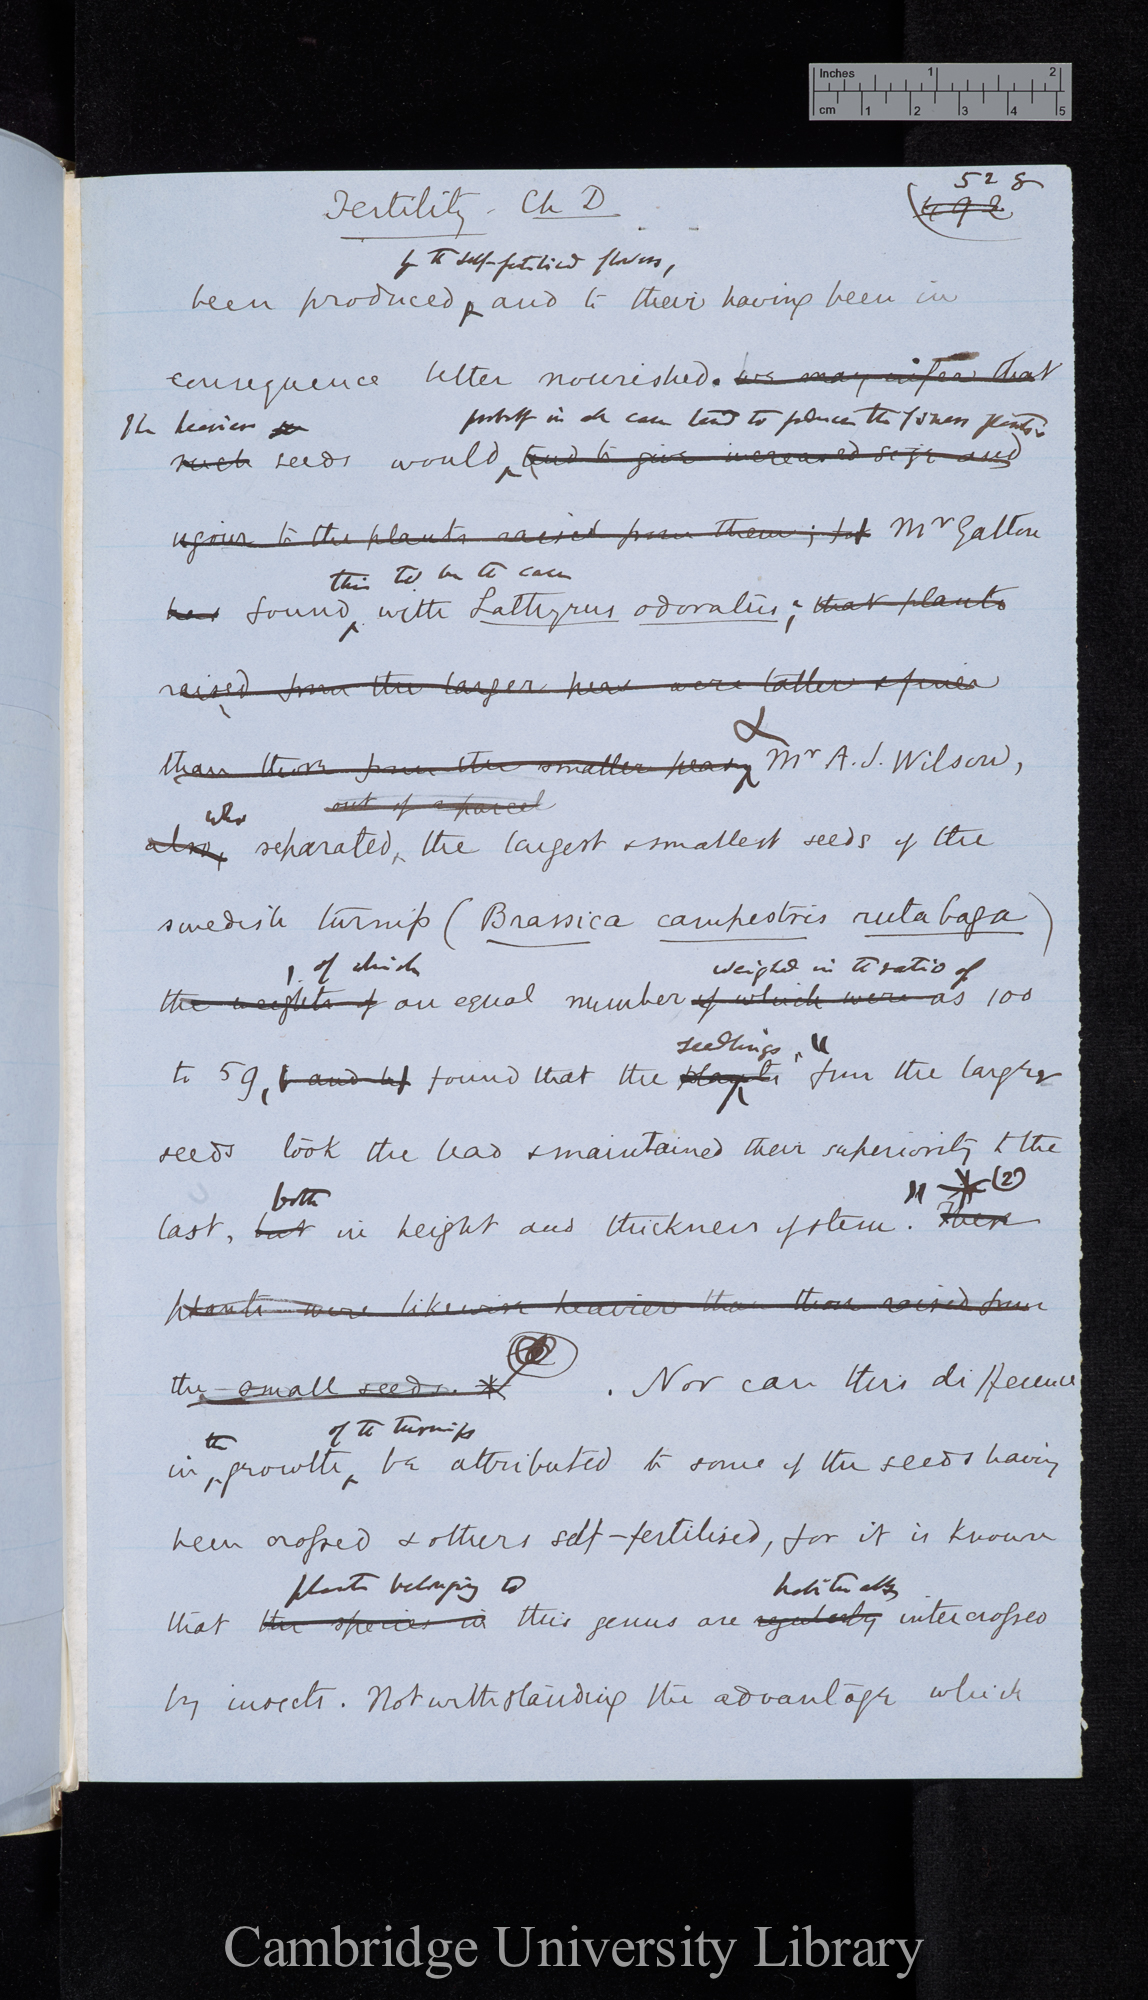 Inches 1 2
cm 1 2 3 4 5
Fertility. Ch D
528
492
by the self-fertilised flowers,
been produced, and to their having been in
consequence better nourished. we may infer that
The heavier
probably in all cases tend to produce the finest plants:
such seeds would, tend to give increased size and
vigour to the plants raised from them; for Mr Galton
this to be the case
has found, with Lathyrus odoratus; that plants
raised from the larger peas were taller & finer
than those from the smaller peas, & Mr A. J. Wilson,
who out of a parcel
also, separated, the largest & smallest seeds of the
swedish turnip (Brassica campestris rutabaga)
, of which weighed in the ratio of
the weights of an equal number of which were as 100
seedlings, "
to 59, and he found that the plants from the larger
seeds took the lead & maintained their superiority to the
both " * (2)
last, but in height and thickness of stem. These
plants were likewise heavier than those raised from
the small seeds. * . Nor can this difference
the of the turnips
in growth, be attributed to some of the seeds having
been crossed & others self-fertilised, for it is known
plants belonging to habitually
that the species in this genus are regularly intercrossed
by insects. Notwithstanding the advantage which
Cambridge University Library